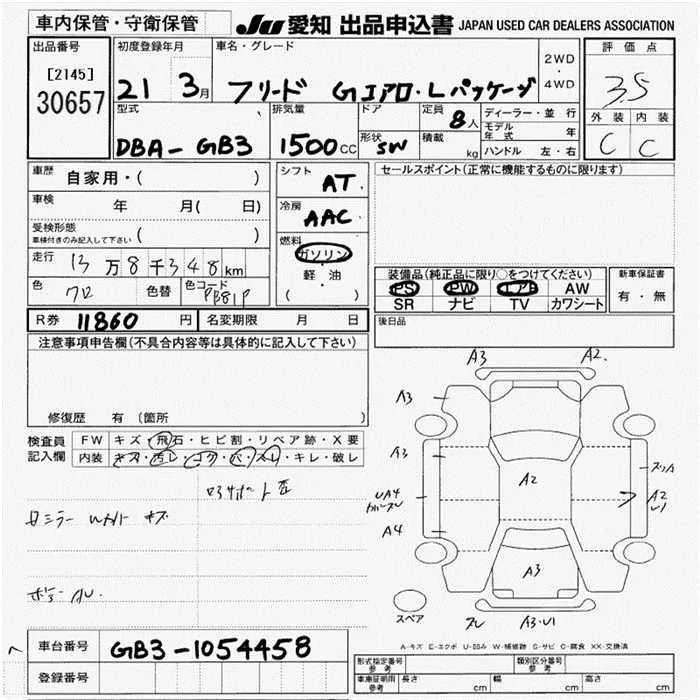 車内保管・守衛保管 JU 愛知 出品申込書 JAPAN USED CAR DEALERS ASSOCIATION
出品番号 初度登録年月 車名・グレード 2WD・4WD 評価点
[2145]
30657
21 3月 フリード Gエアロ・Lパッケージ 3.5
型式 排気量 ドア 定員 8人 ディーラー・並行 外装 内装
DBA-GB3 1500cc 形状 SW 積載 kg モデル年式 年 C C
ハンドル 左・右
車歴 自家用・( ) シフト AT セールスポイント(正常に機能するものに限ります)
車検 年 月( 日) 冷房 AAC
受検形態 車検付きのみ記入して下さい ( )
燃料 ガソリン 軽・油 ( )
走行 13万8千348km
色 クロ 色替 色コード
装備品(純正品に限り○をつけてください) 新車保証書
PS PW エアB AW 有・無
SR ナビ TV カワシート
R券 11860円 名変期限 月 日 後日品
注意事項申告欄(不具合内容等は具体的に記入して下さい)
修復歴 有(箇所
検査員記入欄 FW キズ・飛石・ヒビ割・リペア跡・X要
内装 キズ・汚レ・コゲ・穴・スレ・キレ・破レ
A3 A2.
A3
A3 A2
UA4 A2
A4 U1
A3
スペア A3・U1
A-キズ E-エクボ U-凹み W-補修跡 S-サビ C-腐食 XX-交換済
車台番号 GB3-1054458
登録番号
形式指定番号 参考 類別区分番号 参考
車庫証明用 参考 長さ cm 幅 cm 高さ cm